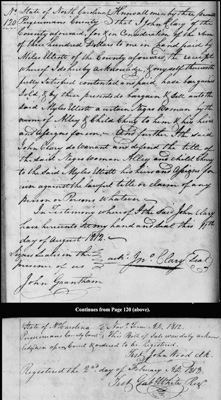 No State of North Carolina Know all men by these pres
120 Perquimans County that I John Clary of the
County aforesaid for & in Consideration of the sum
of three hundred Dollars to me in hand paid by
Myles Elliott of the County aforesaid, the receipt
whereof I do hereby acknowledge & myself therewith
fully satisfied contented & paid have bargained
Sold & by these presents do bargain & sell unto the
said Myles Elliott a certain Negro Woman by the
name of Alley & Child Chery to him & his heirs
and assigns for ever And further I the said
John Clary do warrant and defend the title of
the said Negro Woman Alley and child Chery
to the said Myles Elliott his heirs and assigns for
ever against the lawful title or claim of any
person or persons whatever
In testimony whereof I the said John Clary
have hereunto set my hand and seal this
day of August 1812.
Signed Sealed in the
presence of us Jno. Clary Seal
John Grantham
Continues from Page 120 (above).
State of No Carolina Novr. Term 1812.
Perquimans County Court This Bill of Sale was duly acknow
ledged in open Court & ordered to be registered.
Test John Wood Clk.
Registered the 2nd day of February 1813.
Test White Regr